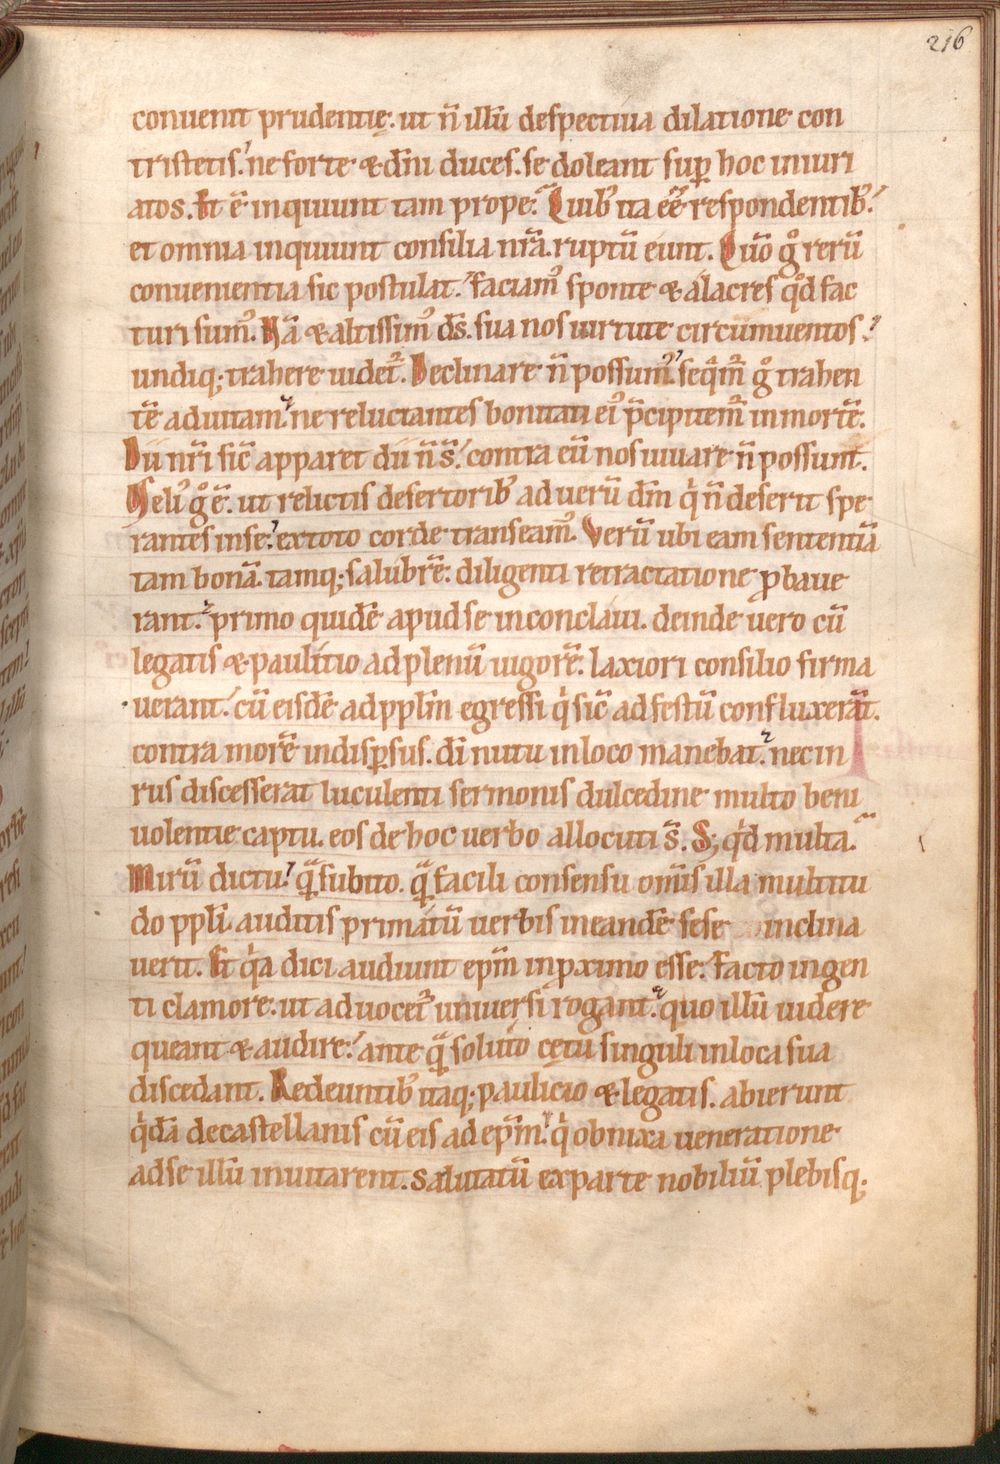 216
conuenit prudentię. ut n̄ illū despectiua dilatione con
tristetis. ne forte & dn̄i duces. se doleant suꝑ hoc iniuri
atos. Et ē inquiunt tam prope. Quib; ita ee respondentib;.
et omnia inquiunt consilia nr̄a. ruptū eunt. Quō gͦ rerū
conuenientia sic postulat. faciamꝰ sponte & alacres qͦd fac
turi sumꝰ. Nā & altissimꝰ ds̄. sua nos uirtute circūmuentos.
undiq; trahere uidet᷑. Declinare n̄ possumꝰ. seqͥm᷑ gͦ trahen
tē aduitam. ne reluctantes bonitati eiꝰ p̄cipitem᷑ in mortē.
Dii nr̄i sic̄ apparet dii n̄ s̄. contra eū nos iuuare n̄ possunt.
Meliꝰ gͦ ē. ut relictis desertorib; ad uerū dm̄ qͥ n̄ deserit spe
rantes inse. extoto corde transeamꝰ. Verū ubi eam sententiā
tam bonā. tamq; salubrē. diligenti retractatione ꝓbaue
rant. primo quidē apud se inconclaui. deinde uero cū
legatis & paulitio ad plenū uigorē. laxiori consilio firma
uerant. cū eisdē ad ppl̄m egressi qͥ sic̄ ad festū confluxerāt.
contra morē indisꝑsus. dī nutu in loco manebat. nec in
rus discesserat luculenti sermonis dulcedine multo beni
uolentie captu. eos de hoc uerbo allocuti s̄. S; qͥd multa.
Mirū dictu. qͣ̄ subito. qͣ̄ facili consensu om̄is illa multitu
do ppl̄i auditis primatū uerbis ineandē sese inclina
uerit. Et qͥa dici audiunt epm̄ inꝓximo esse. facto ingen
ti clamore. ut aduocet᷑ uniuersi rogant. quo illū uidere
queant & audire. ante qͣ̄ soluto cętu singuli inloca sua
discedant. Redeuntib; itaq; paulicio & legatis. abierunt
qͥdā decastellanis cū eis ad epm̄. qͥ obnixa ueneratione
adse illū inuitarent. salutatū exparte nobiliū plebisq;.